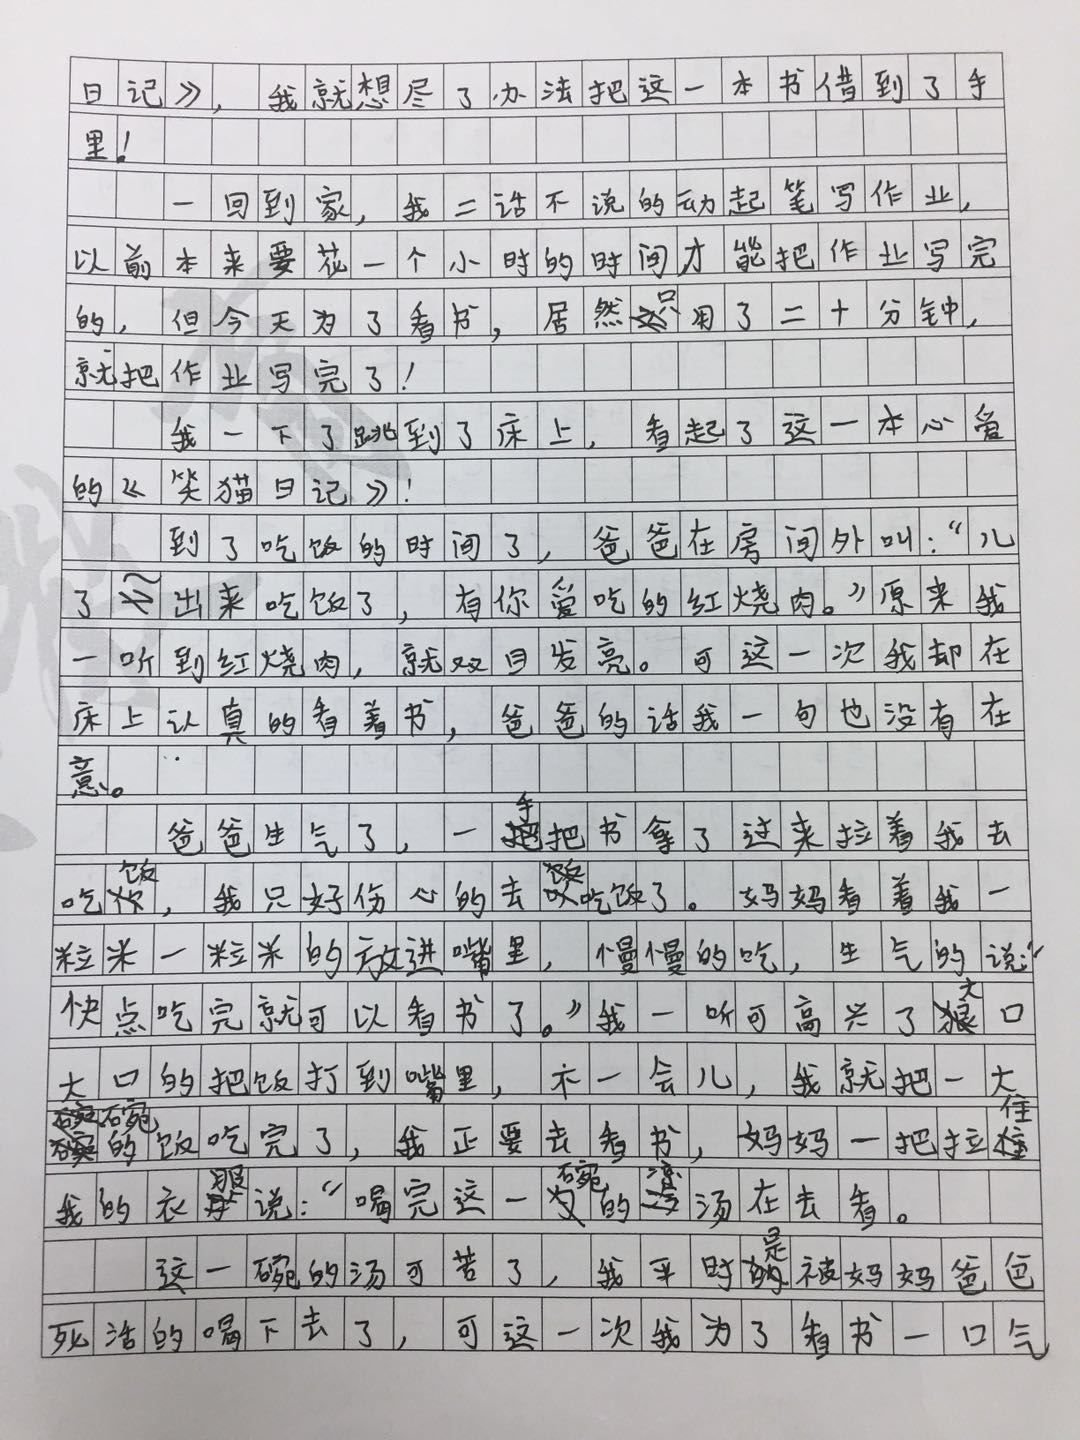 日记》，我就想尽了办法把这一本书借到了手
里！
一回到家，我二话不说的动起笔写作业，
以前本来要花一个小时的时间才能把作业写完
的，但今天为了看书，居然只用了二十分钟，
就把作业写完了！
我一下了跳到了床上，看起了这一本心爱
的《笑猫日记》！
到了吃饭的时间了，爸爸在房间外叫：“儿
了出来吃饭了，有你爱吃的红烧肉。”原来我
一听到红烧肉，就双目发亮。可这一次我却在
床上认真的看着书，爸爸的话我一句也没有在
意。
爸爸生气了，一手把书拿了过来拉着我去
吃饭，我只好伤心的去吃饭了。妈妈看着我一
粒米一粒米的放进嘴里，慢慢的吃，生气的说：“
快点吃完就可以看书了。”我一听可高兴了大口
大口的把饭打到嘴里，不一会儿，我就把一大
碗的饭吃完了，我正要去看书，妈妈一把拉住
我的衣服说：“喝完这一碗的汤在去看。
这一碗的汤可苦了，我平时是被妈妈爸爸
死活的喝下去了，可这一次我为了看书一口气